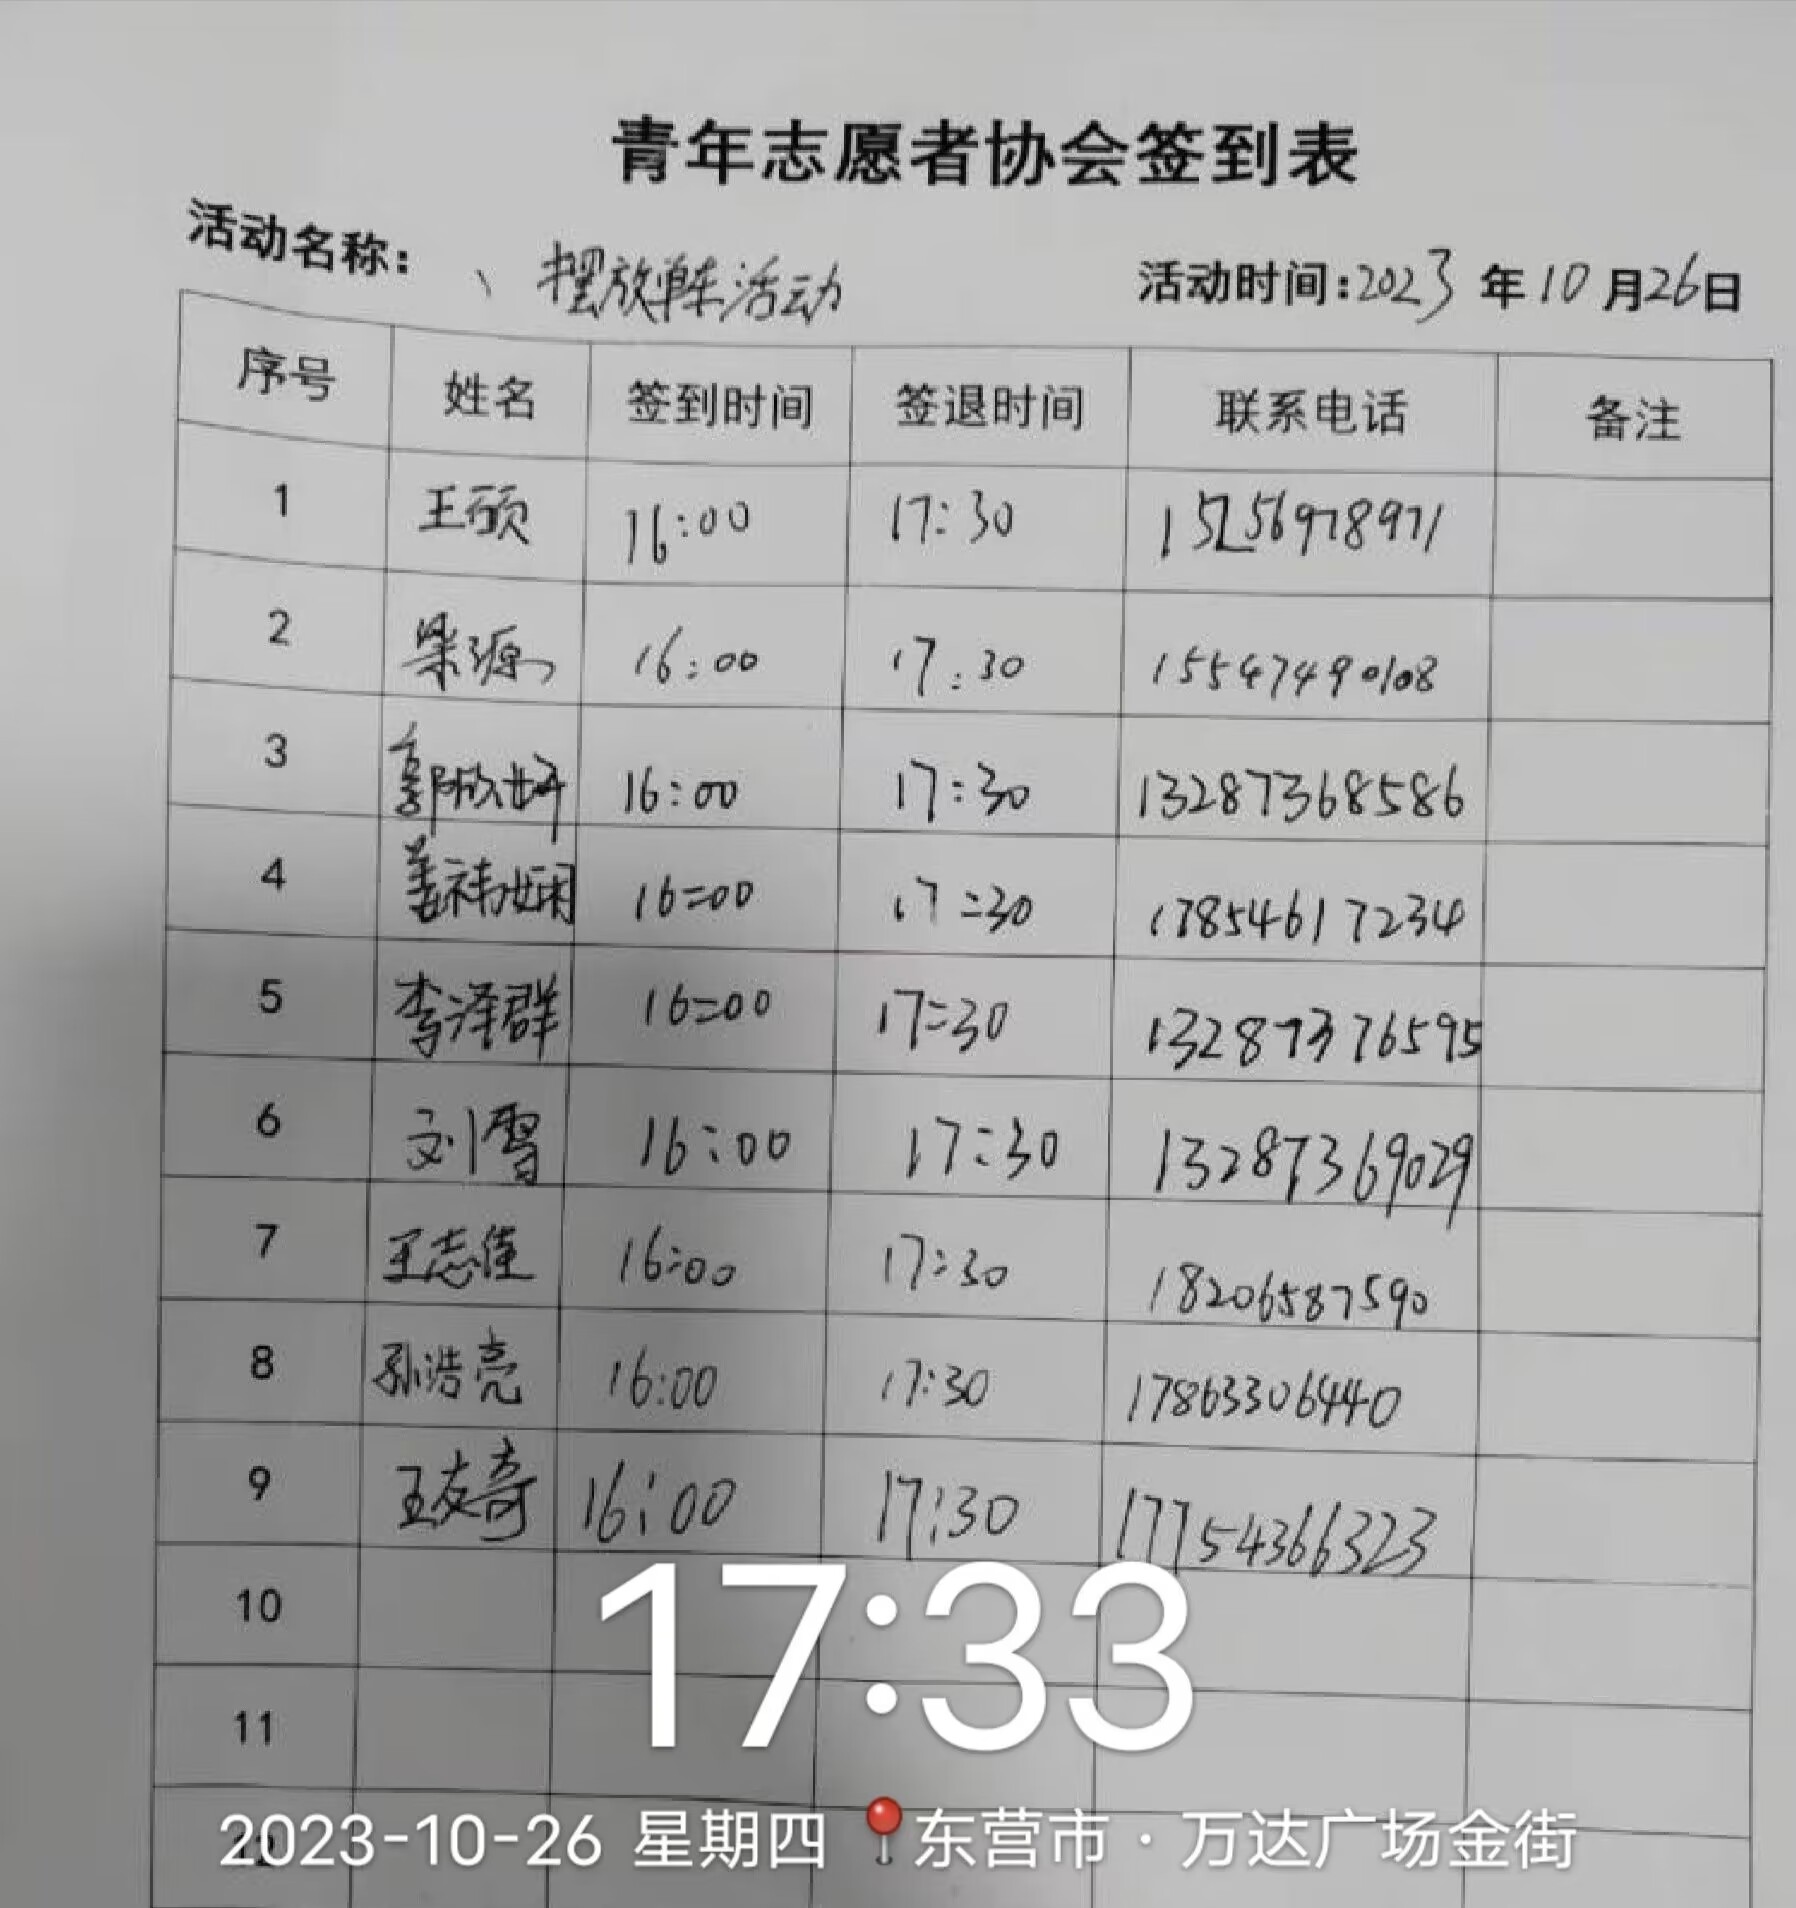 青年志愿者协会签到表
活动名称: 、摆放单车活动 活动时间:2023年10月26日
序号 姓名 签到时间 签退时间 联系电话 备注
1 王硕 16:00 17:30 15256978971
2 梁源 16:00 17:30 15547490108
3 郭欣妤 16:00 17:30 13287368586
4 姜祎娴 16:00 17:30 17854617234
5 李泽群 16:00 17:30 13287376595
6 刘雪 16:00 17:30 13287369029
7 王志佳 16:00 17:30 18206587590
8 孙浩亮 16:00 17:30 17863306440
9 王友奇 16:00 17:30 17754366323
10
11
12
17:33
2023-10-26 星期四 📍东营市·万达广场金街